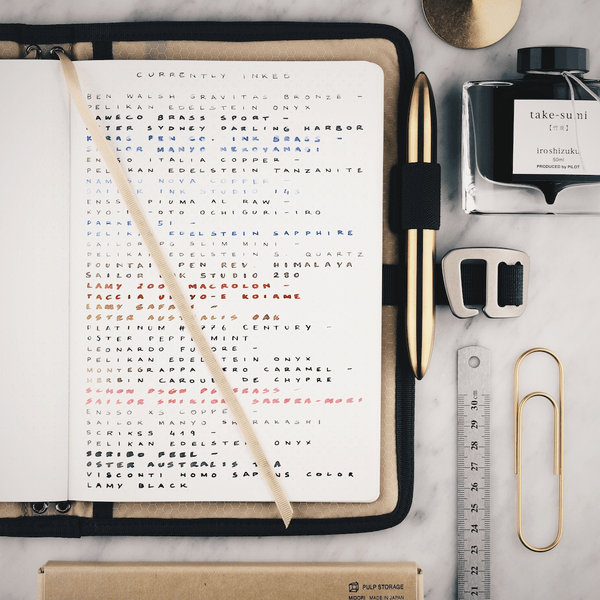 CURRENTLY INKED
BEN WALSH GRAVITAS BRONZE -
PELIKAN EDELSTEIN ONYX
KAWECO BRASS SPORT -
SYDNEY DARLING HARBOR
KARAS PEN CO. INK BRASS -
SAILOR MANYO NEKOYANAGI
ENSSO ITALIA COPPER -
PELIKAN EDELSTEIN TANZANITE
NAMISU NOVA COPPER -
SAILOR INK STUDIO 143
ENSSO PIUMA AL RAW -
KYO-NO-OTO OCHIGURI-IRO
PARKER 51 -
PELIKAN EDELSTEIN SAPPHIRE
SLIM MINI -
PELIKAN EDELSTEIN QUARTZ
FOUNTAIN PEN REV HIMALAYA
SAILOR INK STUDIO 280
LAMY 2000 MACROLON -
TACCIA UKIYO-E KOIAME
LAMY SAFARI -
OSTER AUSTRALIS OAK
PLATINUM #3776 CENTURY -
OSTER PEPPERMINT
LEONARDO FURORE -
PELIKAN EDELSTEIN ONYX
MONTEGRAPPA CARAMEL -
HERBIN CAROUBE DE CHYPRE
BRASS
SAILOR SHIKIORI SAKURA-MORI
ENSSO XS COPPER -
SAILOR MANYO SHIRAKASHI
SCRIKSS 419 -
PELIKAN EDELSTEIN ONYX
SCRIBO FEEL -
OSTER AUSTRALIS
VISCONTI HOMO SAPIENS COLOR
LAMY BLACK
take-sumi
【竹炭】
iroshizuku
50ml
PRODUCED by PILOT
30 cm
29
28
27
26
25
24
23
22
21
PULP STORAGE
MIDORI MADE IN JAPAN